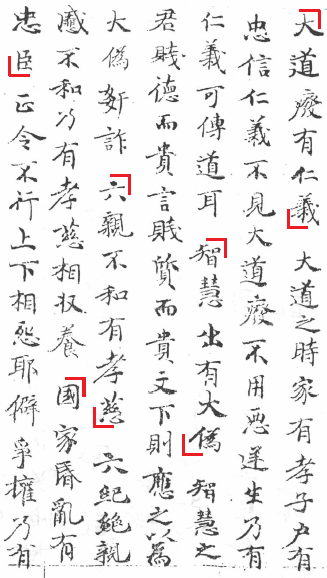 大道癈有仁義 大道之時家有孝子户有
忠信仁義不見大道癈不用惡逆生乃有
仁義可傳道耳 智慧出有大偽 智慧之
君賤德而貴言賤質而貴文下則應之以為
大偽姧詐 六親不和有孝慈 六紀絶親
慼不和乃有孝慈相収養 國家昏亂有
忠臣 正令不行上下相怨耶僻爭權乃有